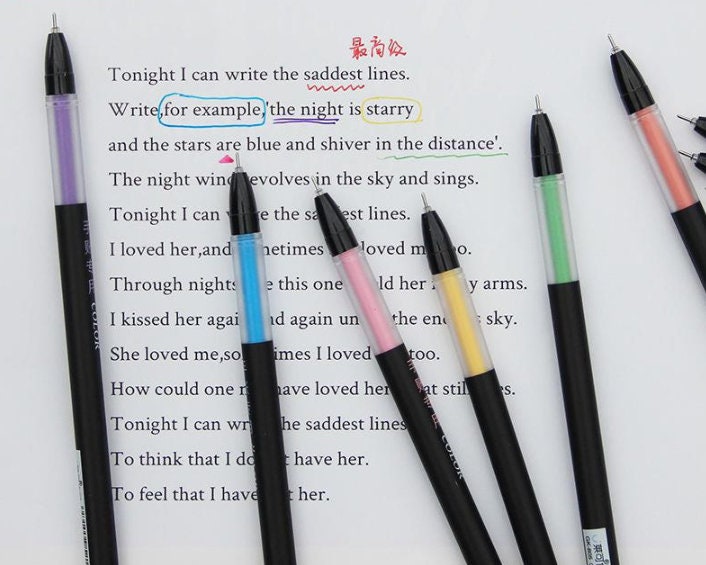 最高级
Tonight I can write the saddest lines.
Write,for example,'the night is starry
and the stars are blue and shiver in the distance'.
The night wind revolves in the sky and sings.
Tonight I can write the saddest lines.
I loved her,and sometimes loved me too.
Through nights like this one held her in my arms.
I kissed her again and again under the endless sky.
She loved me,sometimes I loved too.
How could one not have loved her great still eyes.
Tonight I can write the saddest lines.
To think that I do not have her.
To feel that I have lost her.
COLOR
COLOR